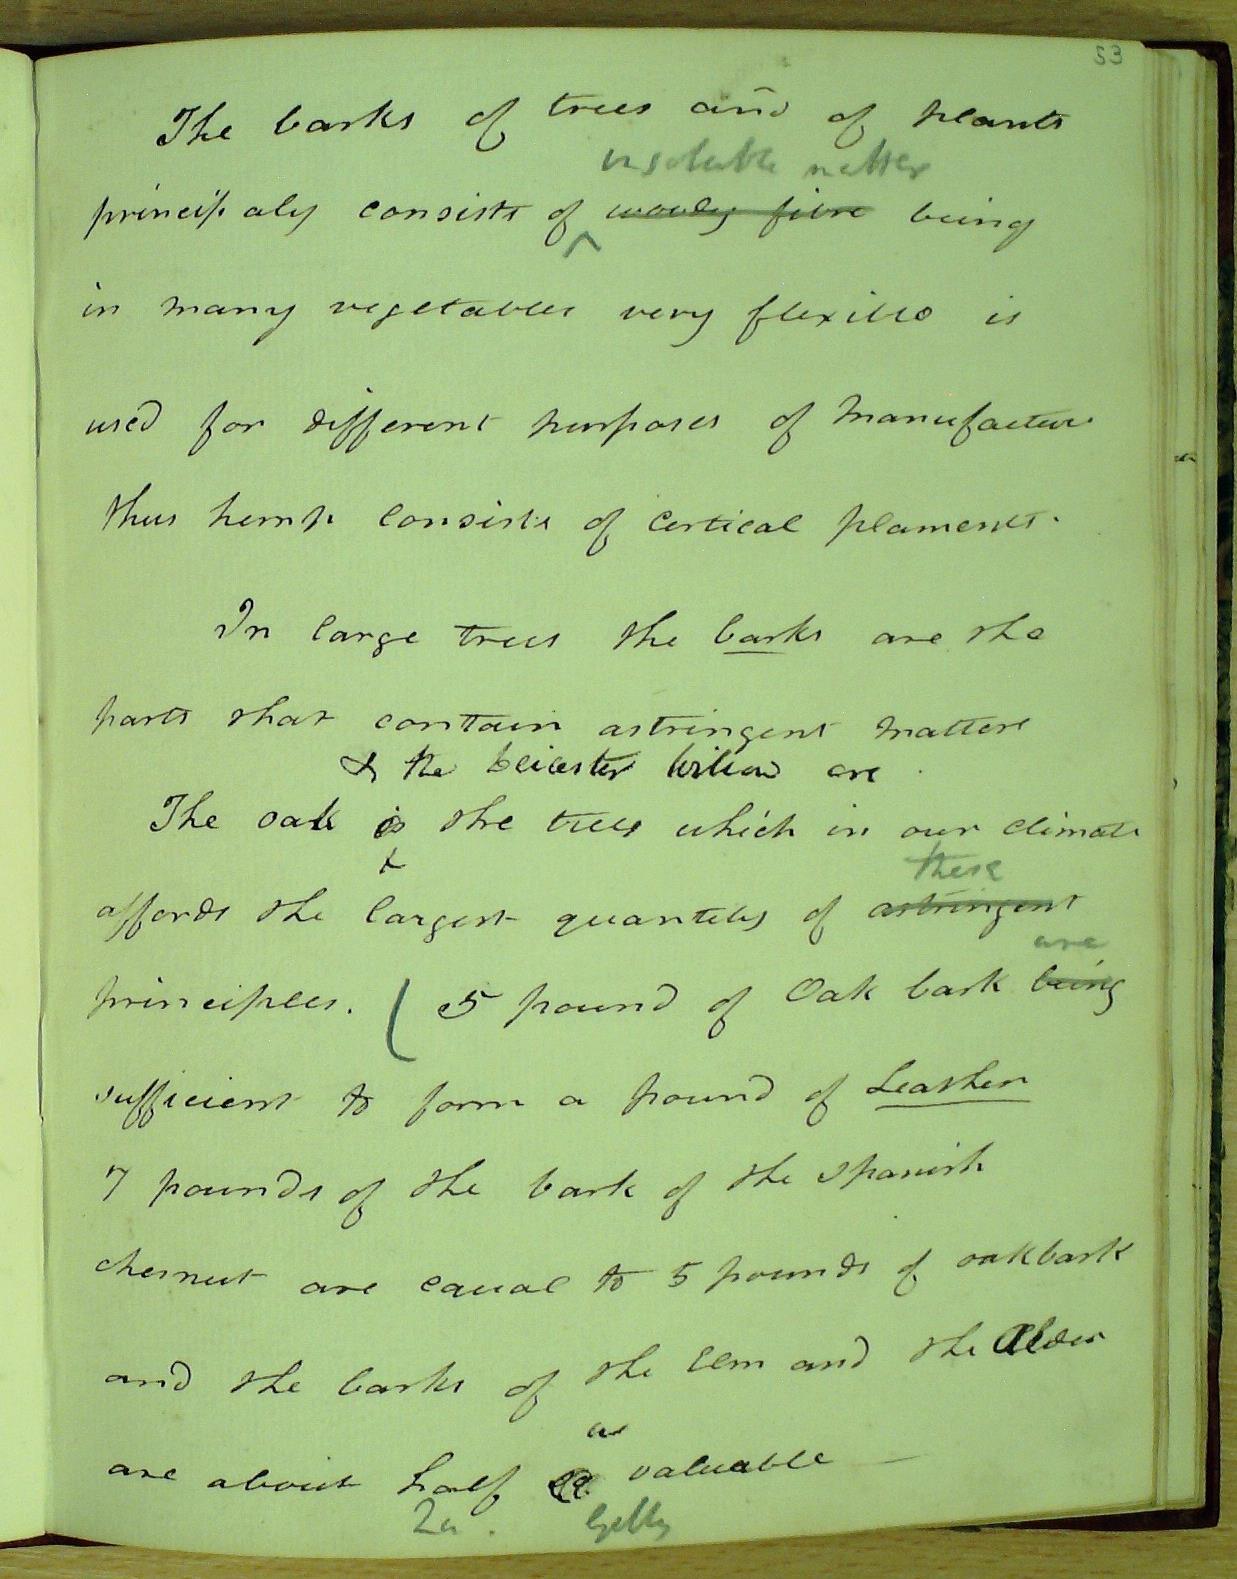 53
The barks of trees and of plants
insoluble matter
principaly consists of woody fibre being
in many vegetables very flexible is
used for different purposes of manufacture
thus hemp consists of cortical plaments.
In large trees the barks are the
parts that contain astringent matters
& the Leicester Willow are
The oak is the trees which in our climate
affords the largest quantities of astringent
these
are
principles. ( 5 pound of Oak bark being
sufficient to form a pound of Leather
7 pounds of the bark of the spanish
chesnut are equal to 5 pounds of oakbark
and the barks of the Elm and the Alder
as
are about half valuable —